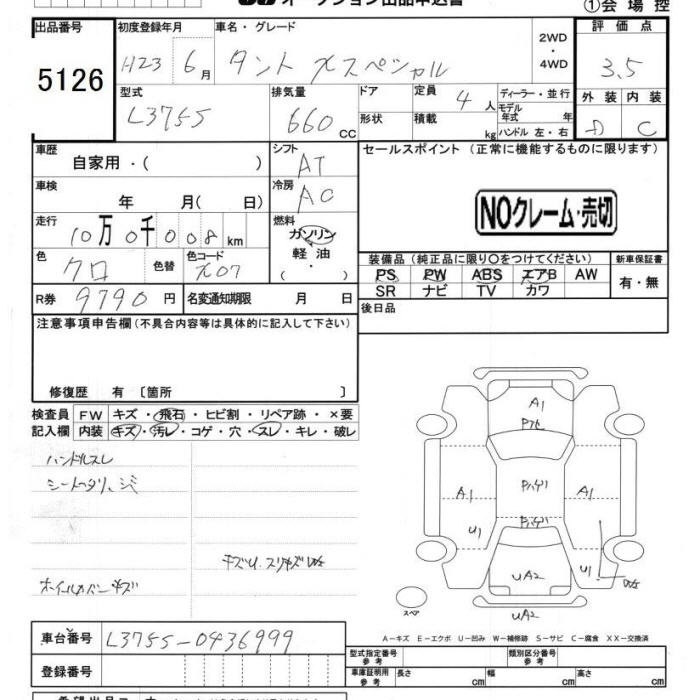 オークション出品申込書
①会場控
出品番号 初度登録年月 車名・グレード 2WD・4WD 評価点
5126 H23 6月 タント Xスペシャル 3.5
型式 排気量 ドア 定員 4人 ディーラー・並行 外装 内装
L375S 660CC 形状 積載 kg モデル年式 年 D C
ハンドル 左・右
車歴 自家用・( ) シフト AT セールスポイント(正常に機能するものに限ります)
車検 年 月( 日) 冷房 AC
NOクレーム・売切
走行 10万0千008km 燃料 ガソリン 軽油 ( ・ )
色 クロ 色替 色コード X07
装備品(純正品に限り○をつけてください) 新車保証書
PS PW ABS エアB AW 有・無
SR ナビ TV カワ
R券 9790円 名変通知期限 月 日
後日品
注意事項申告欄(不具合内容等は具体的に記入して下さい)
修復歴 有 〔箇所 〕
検査員 FW キズ・飛石・ヒビ割・リペア跡・×要
記入欄 内装 キズ・汚レ・コゲ・穴・スレ・キレ・破レ
ハンドルスレ
シートヘタリ、シミ
キズU.スリキズ
ホイールカバーキズ
A1
A1 A1
U1 U1
UA2
スペア
UA2
A-キズ E-エクボ U-凹み W-補修跡 S-サビ C-腐食 XX-交換済
車台番号 L375S-0436999
登録番号
型式指定番号 参考 類別区分番号 参考
車庫証明用 参考 長さ cm 幅 cm 高さ cm